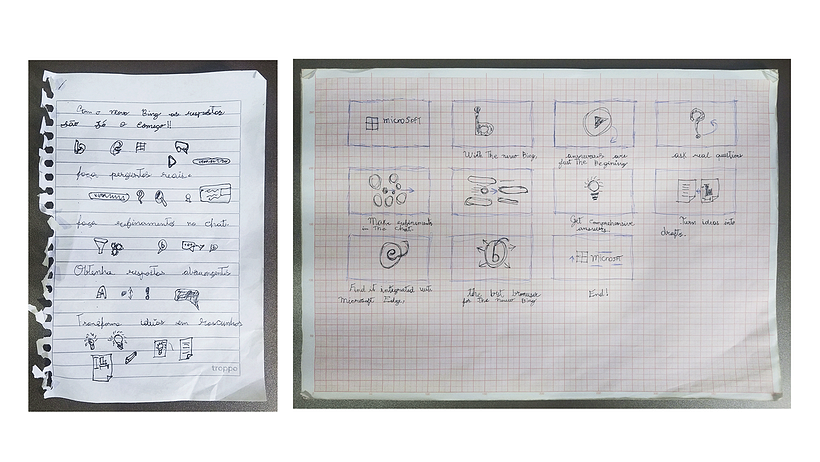 Com o novo Bing as respostas
são só o começo!!
faça perguntas reais.
faça refinamentos no chat.
Obtenha respostas abrangentes
Transforme ideias em rascunhos
troppo
microsoft
With The new Bing,
answers are
just the Beginning
ask real questions
Make refinements
in the chat.
Get comprehensive
answers.
Turn ideas into
drafts.
Microsoft
Find it integrated with
Microsoft Edge,
the best browser
for the new Bing
End!